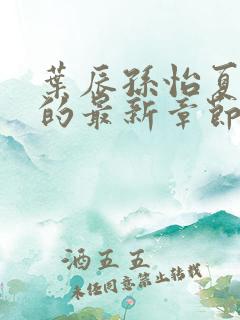 葉辰孫怡夏
的最新章節
酒五五
未任同意禁止转载